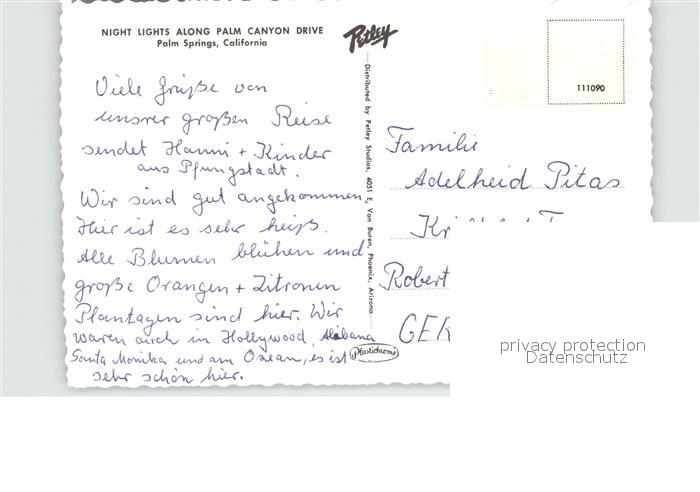 NIGHT LIGHTS ALONG PALM CANYON DRIVE
Palm Springs, California
Viele Grüße von
unsrer großen Reise
sendet Hanni + Kinder
aus Pfungstadt.
Wir sind gut angekommen.
Hier ist es sehr heiß.
Alle Blumen blühen und
große Orangen + Zitronen
Plantagen sind hier. Wir
waren auch in Hollywood,
Santa Monika und am Ozean, es ist
sehr schön hier.
Petley
Distributed by Petley Studios, 4051 E. Van Buren, Phoenix, Arizona
Plastichrome
111090
Familie
Adelheid Pitas
Robert
GER
privacy protection
Datenschutz